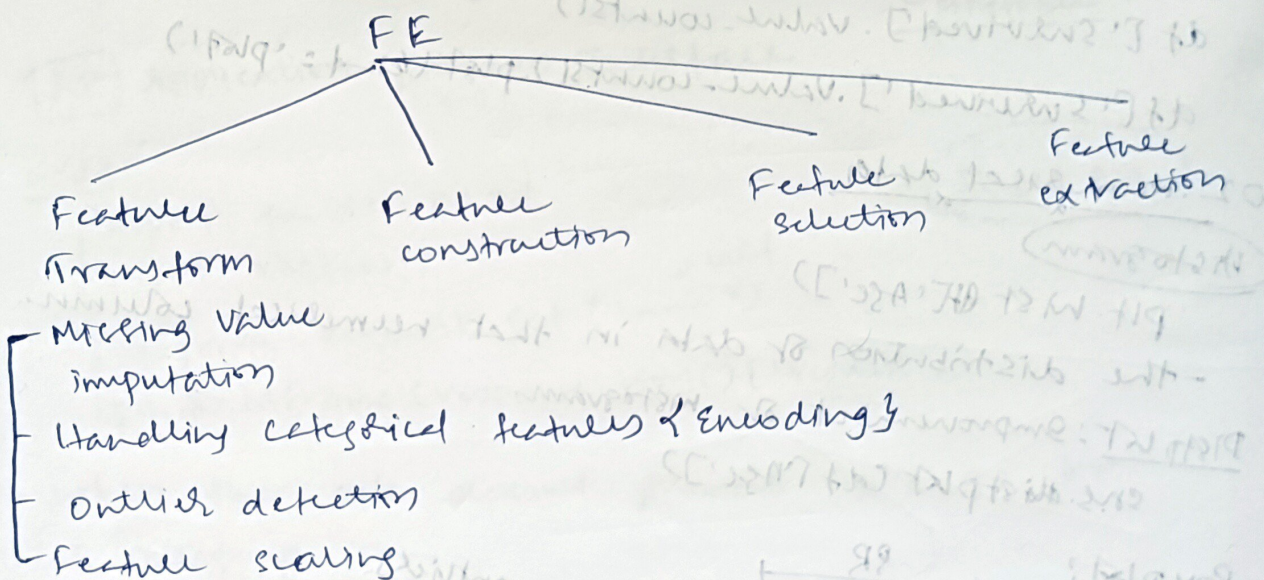 FE
Feature
Transform
Feature
construction
Feature
selection
Feature
extraction
- Missing value
imputation
- Handling categorical features {Encoding}
- Outlier detection
- Feature scaling